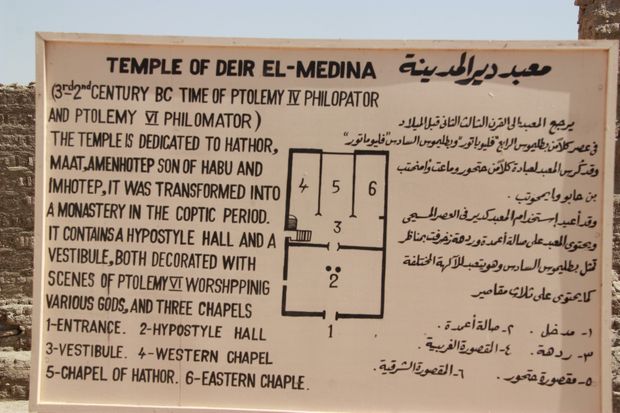 TEMPLE OF DEIR EL-MEDINA
معبد دير المدينة
(3rd2nd CENTURY BC TIME OF PTOLEMY IV PHILOPATOR
AND PTOLEMY VI PHILOMATOR)
THE TEMPLE IS DEDICATED TO HATHOR,
MAAT, AMENHOTEP SON OF HABU AND
IMHOTEP, IT WAS TRANSFORMED INTO
A MONASTERY IN THE COPTIC PERIOD.
IT CONTAINS A HYPOSTYLE HALL AND A
VESTIBULE, BOTH DECORATED WITH
SCENES OF PTOLEMY VI WORSHPPING
VARIOUS GODS, AND THREE CHAPELS
1-ENTRANCE. 2-HYPOSTYLE HALL
3-VESTIBULE. 4-WESTERN CHAPEL
5-CHAPEL OF HATHOR. 6-EASTERN CHAPLE.
4 5 6
3
2
1
يرجع المعبد الى القرن الثالث الثانى قبل الميلاد
فى عصر كلا من بطليموس الرابع "فليوباتور" وبطليموس السادس "فليوماتور"
وقد كرس المعبد لعبادة كلا من حتحور وماعت وامنحتب
بن حابو وايمحوتب .
وقد أعيد إستخدام المعبد كدير فى العصر المسيحى
ويحتوى المعبد على صالة أعمدة وردهة زخرفت بمناظر
تمثل بطليموس السادس وهو يتعبد للآلهة المختلفة
كما يحتوى على ثلاث مقاصير
١- مدخل . ٢- صالة أعمدة .
٣- ردهة . ٤- المقصورة الغربية .
٥- مقصورة حتحور . ٦- المقصورة الشرقية .